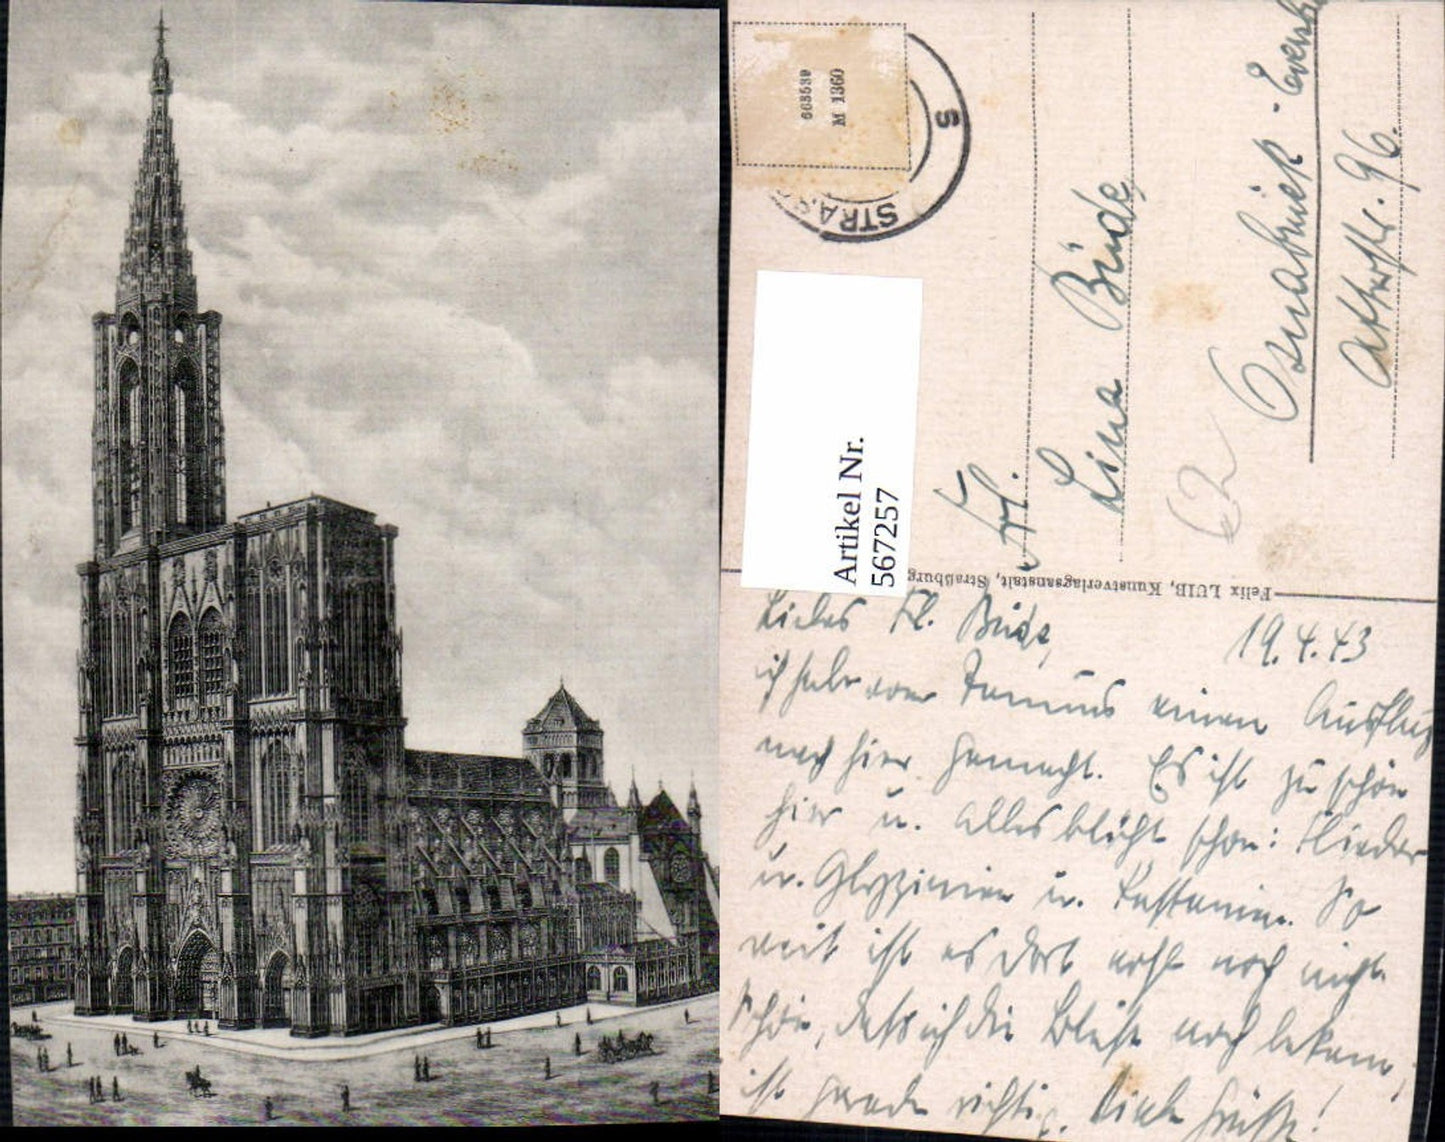 663539
M 1360
STRAS
S
Artikel Nr.
567257
Frl.
Lina Büde,
Osnabrück -
Atterstr. 96.
62
Felix LUIB, Kunstverlagsanstalt, Straßburg
Liebes Frl. Büde,
19.4.43
ich habe vom Taunus einen Ausflug
nach hier gemacht. Es ist zu schön
hier u. alles blüht schon: Flieder
u. Glyzinien u. Kastanien. So
weit ist es dort wohl noch nicht
schön, dass ich die Blüte noch bekam,
ist gerade richtig. Viele Grüße!